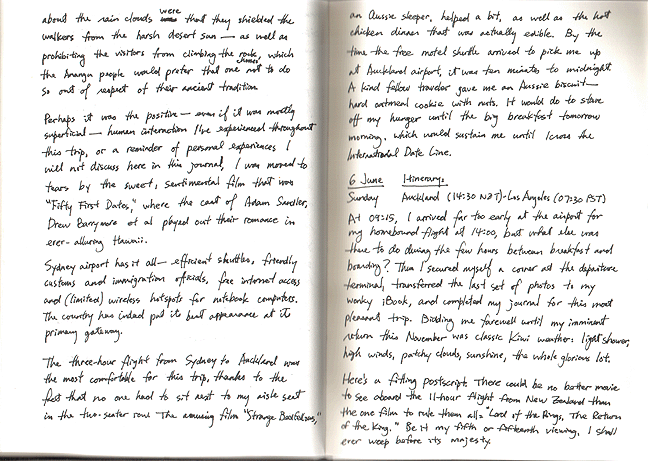 about the rain clouds were that they shielded the
walkers from the harsh desert sun — as well as
prohibiting the visitors from climbing the rock, which
the Anangu people would prefer that one not to do
so out of respect of their ancient tradition.
Perhaps it was the positive — even if it was mostly
superficial — human interaction I've experienced throughout
this trip, or a reminder of personal experiences I
will not discuss here in this journal, I was moved to
tears by the sweet, sentimental film that was
"Fifty First Dates," where the cast of Adam Sandler,
Drew Barrymore et al played out their romance in
ever-alluring Hawaii.
Sydney airport has it all — efficient shuttles, friendly
customs and immigration officials, free internet access
and (limited) wireless hotspots for notebook computers.
The country has indeed put its best appearance at its
primary gateway.
The three-hour flight from Sydney to Auckland was
the most comfortable for this trip, thanks to the
fact that no one had to sit next to my aisle seat
in the two-seater row. The amusing film "Strange Bedfellows,"
an Aussie sleeper, helped a bit, as well as the hot
chicken dinner that was actually edible. By the
time the free motel shuttle arrived to pick me up
at Auckland airport, it was ten minutes to midnight.
A kind fellow traveler gave me an Aussie biscuit —
hard oatmeal cookie with nuts. It would do to stave
off my hunger until the big breakfast tomorrow
morning, which would sustain me until I cross the
International Date Line.
6 June Itinerary:
Sunday Auckland (14:30 NZT)-Los Angeles (07:30 PST)
At 09:15, I arrived far too early at the airport for
my homebound flight at 14:00, but what else was
there to do during the few hours between breakfast and
boarding? Thus I secured myself a corner at the departure
terminal, transferred the last set of photos to my
wonky iBook, and completed my journal for this most
pleasant trip. Bidding me farewell until my imminent
return this November was classic Kiwi weather: light shower,
high winds, patchy clouds, sunshine, the whole glorious lot.
Here's a fitting postscript. There could be no better movie
to see aboard the 11-hour flight from New Zealand than
the one film to rule them all - "Lord of the Rings, The Return
of the King." Be it my fifth or fifteenth viewing, I shall
ever weep before its majesty.